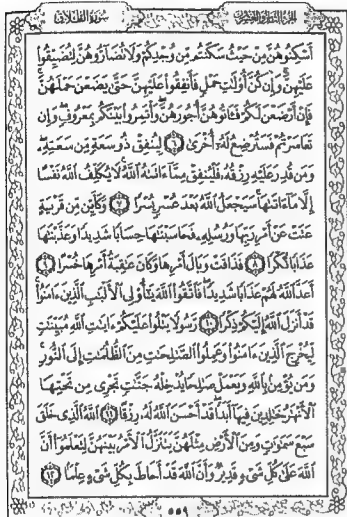 الجزء الثامن والعشرون سورة الطلاق
أَسْكِنُوهُنَّ مِنْ حَيْثُ سَكَنتُم مِّن وُجْدِكُمْ وَلَا تُضَارُّوهُنَّ لِتُضَيِّقُوا۟
عَلَيْهِنَّ وَإِن كُنَّ أُو۟لَٰتِ حَمْلٍ فَأَنفِقُوا۟ عَلَيْهِنَّ حَتَّىٰ يَضَعْنَ حَمْلَهُنَّ
فَإِنْ أَرْضَعْنَ لَكُمْ فَـَٔاتُوهُنَّ أُجُورَهُنَّ وَأْتَمِرُوا۟ بَيْنَكُم بِمَعْرُوفٍ وَإِن
تَعَاسَرْتُمْ فَسَتُرْضِعُ لَهُۥٓ أُخْرَىٰ ٦ لِيُنفِقْ ذُو سَعَةٍ مِّن سَعَتِهِۦ
وَمَن قُدِرَ عَلَيْهِ رِزْقُهُۥ فَلْيُنفِقْ مِمَّآ ءَاتَىٰهُ ٱللَّهُ لَا يُكَلِّفُ ٱللَّهُ نَفْسًا
إِلَّا مَآ ءَاتَىٰهَا سَيَجْعَلُ ٱللَّهُ بَعْدَ عُسْرٍ يُسْرًا ٧ وَكَأَيِّن مِّن قَرْيَةٍ
عَتَتْ عَنْ أَمْرِ رَبِّهَا وَرُسُلِهِۦ فَحَاسَبْنَٰهَا حِسَابًا شَدِيدًا وَعَذَّبْنَٰهَا
عَذَابًا نُّكْرًا ٨ فَذَاقَتْ وَبَالَ أَمْرِهَا وَكَانَ عَٰقِبَةُ أَمْرِهَا خُسْرًا ٩
أَعَدَّ ٱللَّهُ لَهُمْ عَذَابًا شَدِيدًا فَٱتَّقُوا۟ ٱللَّهَ يَٰٓأُو۟لِى ٱلْأَلْبَٰبِ ٱلَّذِينَ ءَامَنُوا۟
قَدْ أَنزَلَ ٱللَّهُ إِلَيْكُمْ ذِكْرًا ١٠ رَّسُولًا يَتْلُوا۟ عَلَيْكُمْ ءَايَٰتِ ٱللَّهِ مُبَيِّنَٰتٍ
لِّيُخْرِجَ ٱلَّذِينَ ءَامَنُوا۟ وَعَمِلُوا۟ ٱلصَّٰلِحَٰتِ مِنَ ٱلظُّلُمَٰتِ إِلَى ٱلنُّورِ
وَمَن يُؤْمِنۢ بِٱللَّهِ وَيَعْمَلْ صَٰلِحًا يُدْخِلْهُ جَنَّٰتٍ تَجْرِى مِن تَحْتِهَا
ٱلْأَنْهَٰرُ خَٰلِدِينَ فِيهَآ أَبَدًا قَدْ أَحْسَنَ ٱللَّهُ لَهُۥ رِزْقًا ١١ ٱللَّهُ ٱلَّذِى خَلَقَ
سَبْعَ سَمَٰوَٰتٍ وَمِنَ ٱلْأَرْضِ مِثْلَهُنَّ يَتَنَزَّلُ ٱلْأَمْرُ بَيْنَهُنَّ لِتَعْلَمُوٓا۟ أَنَّ
ٱللَّهَ عَلَىٰ كُلِّ شَىْءٍ قَدِيرٌ وَأَنَّ ٱللَّهَ قَدْ أَحَاطَ بِكُلِّ شَىْءٍ عِلْمًۢا ١٢
٥٥٩